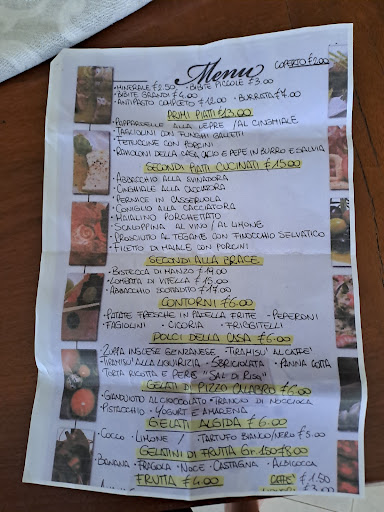 Menu
COPERTO €2.00
•MINERALE €2.50 •BIBITE PICCOLE €3.00
•BIBITE GRANDI €4.00
•ANTIPASTO COMPLETO €12.00 •BURRATA €7.00
PRIMI PIATTI €13.00
•PAPPARDELLE ALLA LEPRE / AL CINGHIALE
•TAGLIOLINI CON FUNGHI GALLETTI
•FETTUCINE CON PORCINI
•RAVIOLONI DELLA CASA CACIO E PEPE IN BURRO E SALVIA
SECONDI PIATTI CUCINATI €15.00
•ABBACCHIO ALLA SVINADORA
•CINGHIALE ALLA CACCIATORA
•PERNICE IN CASSERUOLA
•CONIGLIO ALLA CACCIATORA
•MAIALINO PORCHETTATO
•SCALOPPINA AL VINO / AL LIMONE
•PROSCIUTTO AL TEGAME CON FINOCCHIO SELVATICO
•FILETTO DI MAIALE CON PORCINI
SECONDI ALLA BRACE
•BISTECCA DI MANZO €19.00
•LOMBATA DI VITELLA €15.00
•ABBACCHIO SCOTTADITO €17.00
CONTORNI €6.00
•PATATE FRESCHE IN PADELLA FRITTE •PEPERONI
•FAGIOLINI •CICORIA •FRIGGITELLI
DOLCI DELLA CASA €6.00
•ZUPPA INGLESE GENZANESE •TIRAMISU' AL CAFFE'
•TIRAMISU' ALLA LIQUIRIZIA •SBRICIOLATA •PANNA COTTA
TORTA RICOTTA E PERE "SAL DI RISO"
GELATI DI PIZZO CALABRO €6.00
•GIANDUIOTTO AL CIOCCOLATO •TRANCIO DI NOCCIOLA
•PISTACCHIO •YOGURT E AMARENA
GELATI ALGIDA €6.00
•COCCO / LIMONE / TARTUFO BIANCO/NERO €5.00
GELATINI DI FRUTTA Gr 150 €8.00
•BANANA •FRAGOLA •NOCE •CASTAGNA •ALBICOCCA
FRUTTA €4.00
CAFFE' €1.50
€3.00